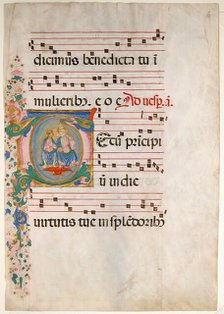 dicimus benedicta tu i
mulieribꝫ. e o e Ad uesp. a.
Tecū prīcipi
ū in die
uirtutis tue in splēdoribꝫ